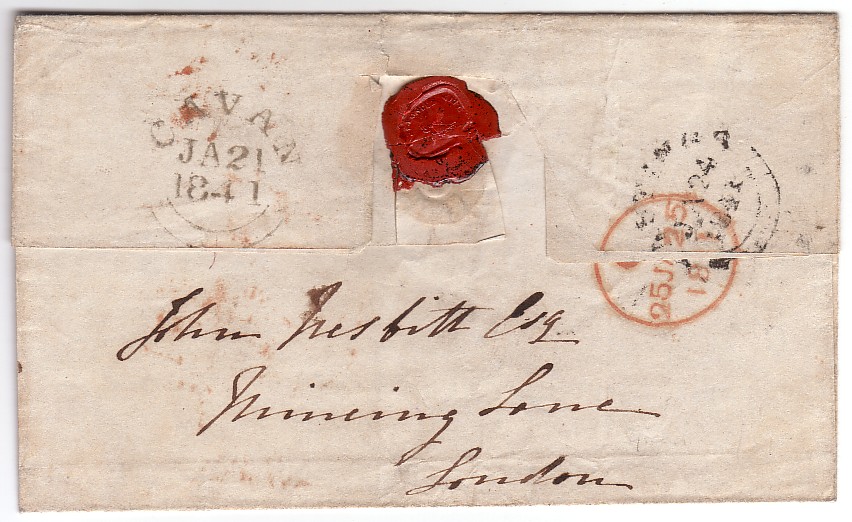 CAVAN
JA 21
1841
JA 24
25 JA 25
18 1
John Nesbitt Esq
Mincing Lane
London